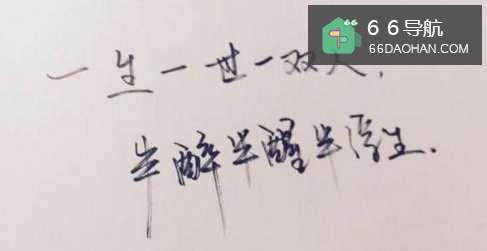 66导航
66DAOHAN.COM
一生一世一双人,
半醉半醒半浮生.